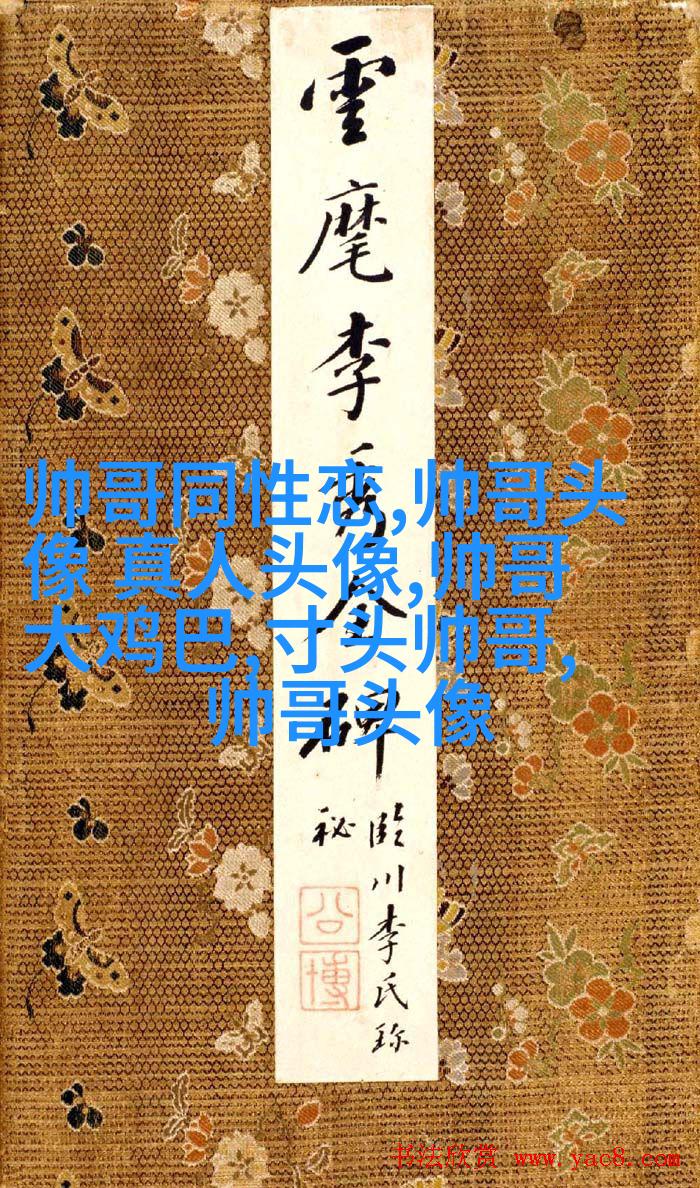 雲麾李秀全碑
臨川李氏珍
秘
公
博
帅哥同性恋,帅哥头
像 真人头像,帅哥
大鸡巴,寸头帅哥,
帅哥头像
书法欣赏 www.yac8.com